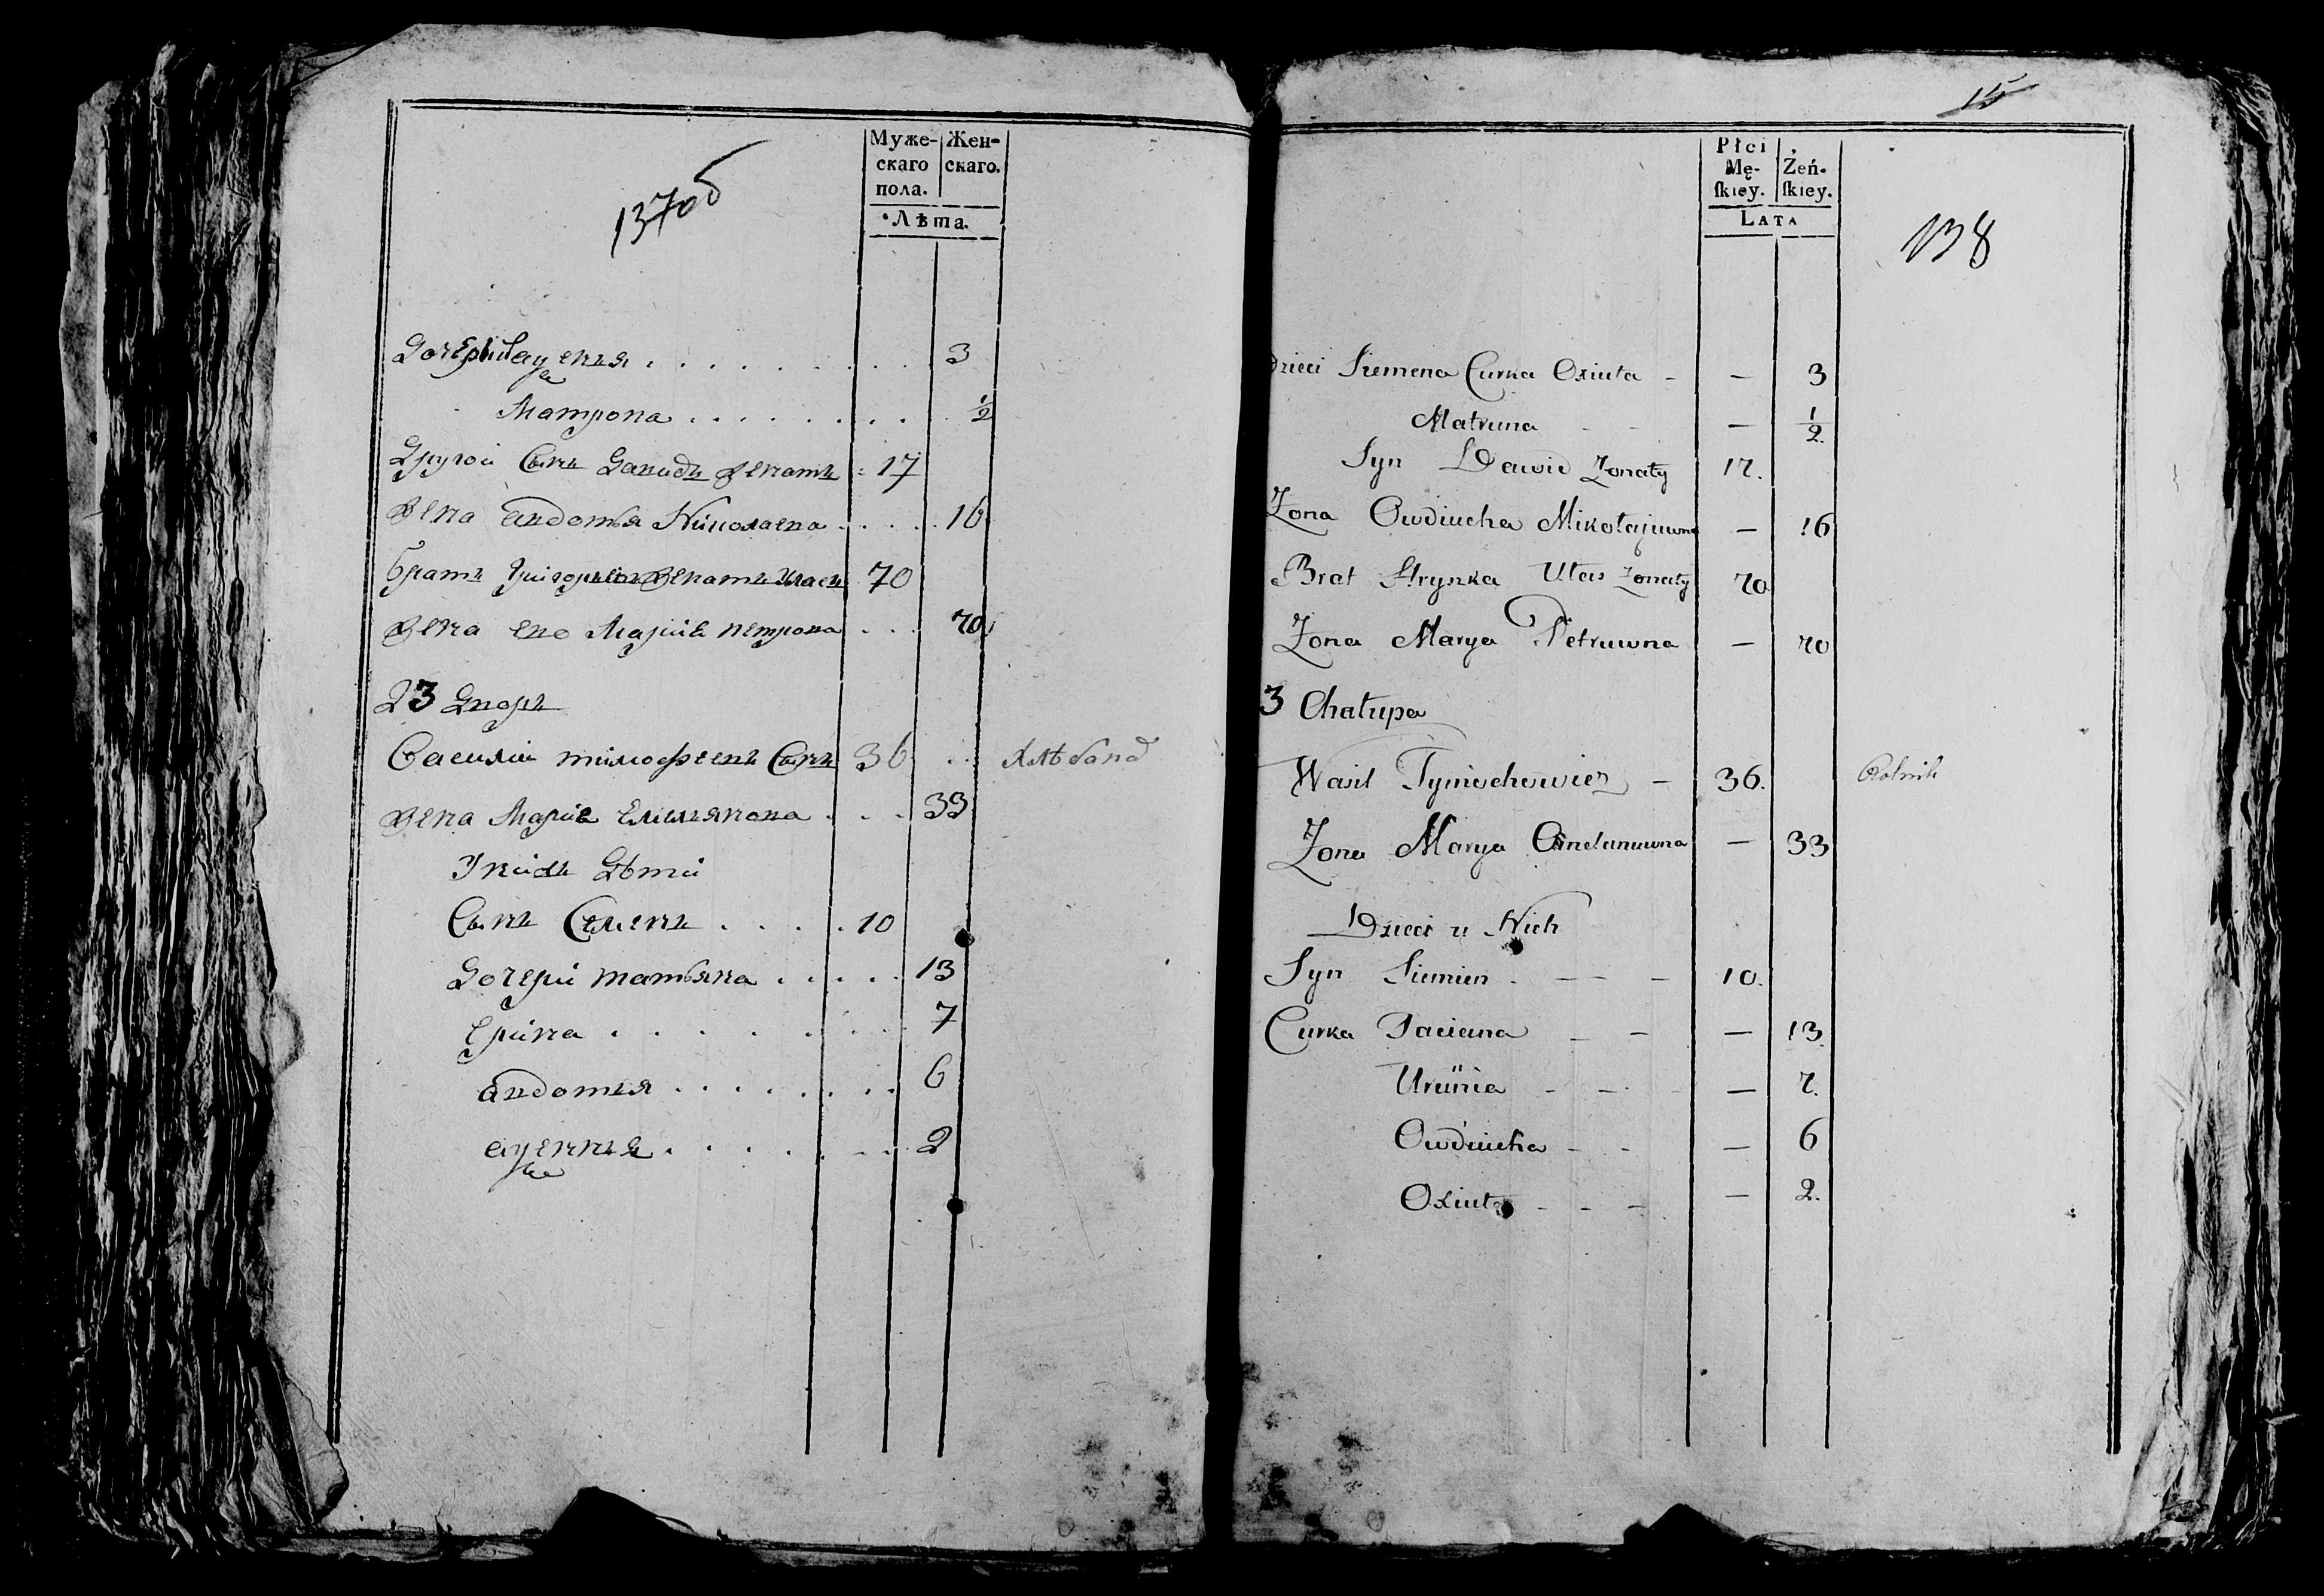 137об
Муже-
скаго
пола.
Жен-
скаго.
Лѣта.
Дочери
3
Матрона 1/2
Другой Сынъ Давидъ женатъ 17
жена авдотья Николаева 16
братъ женатъ 70
жена ево Марія петрова 70
23 Дворъ
Василий тимофеевъ Сынъ 36 Хлѣбопа
жена Марія Емельянова 33
У нихъ Дѣти
Сынъ Семенъ 10
Дочери татьяна 13
ерина 7
авдотья 6
2
15
Płci
Mę-
ſkiey.
Żeń-
ſkiey.
LATA
138
Dzieci Siemena Curka Oxiuta - — 3
Matruna — 1/2
Syn Dawid Zonaty 17.
Zona Owdiucha Mikołajuwna — 16
Brat Hryszka Ułas Zonaty 70
Zona Marya Petruwna — 70
3 Chałupa
Wasil Tymochowicz — 36. Rolnik
Zona Marya — 33
Dzieci u Nich
Syn Siemien 10.
Curka Taciana — 13.
— 7.
Owdiucha — 6
Oxiuta — 2.